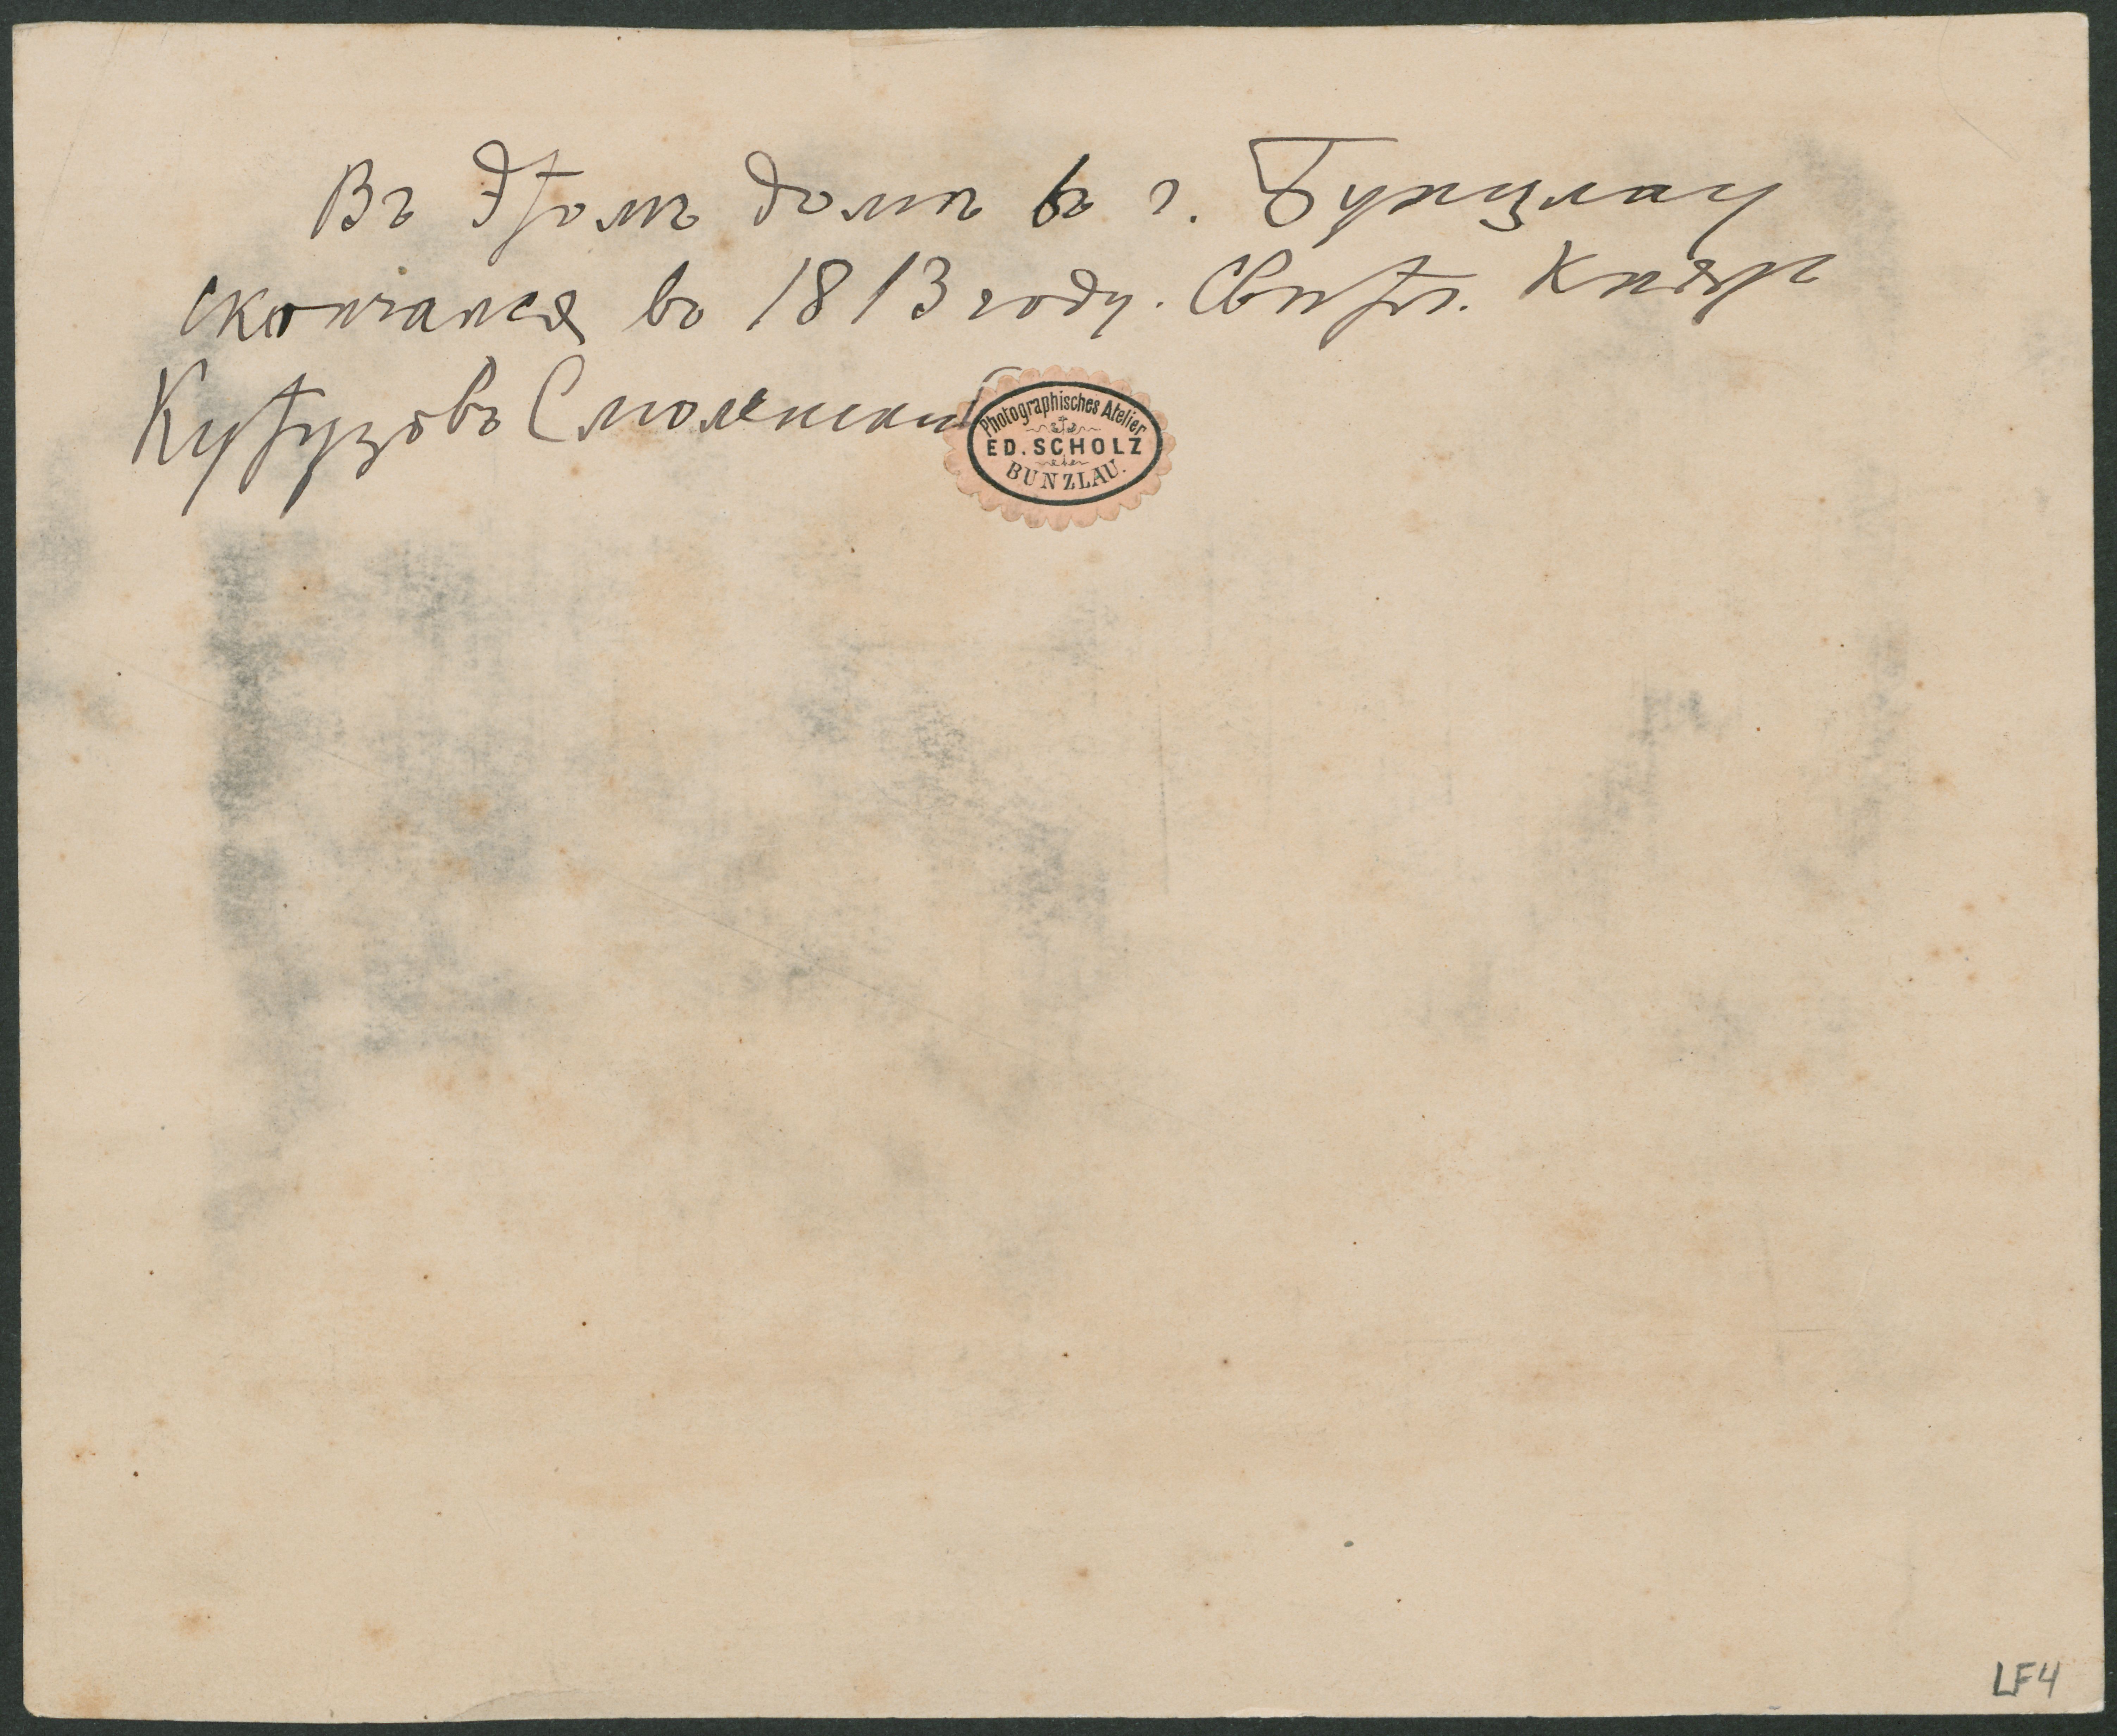 Въ этомъ домѣ въ г. Бунцлау
скончался въ 1813 году. Свѣтл. Князь
Кутузовъ Смоленскій
Photographisches Atelier
ED. SCHOLZ
BUNZLAU.
LF4